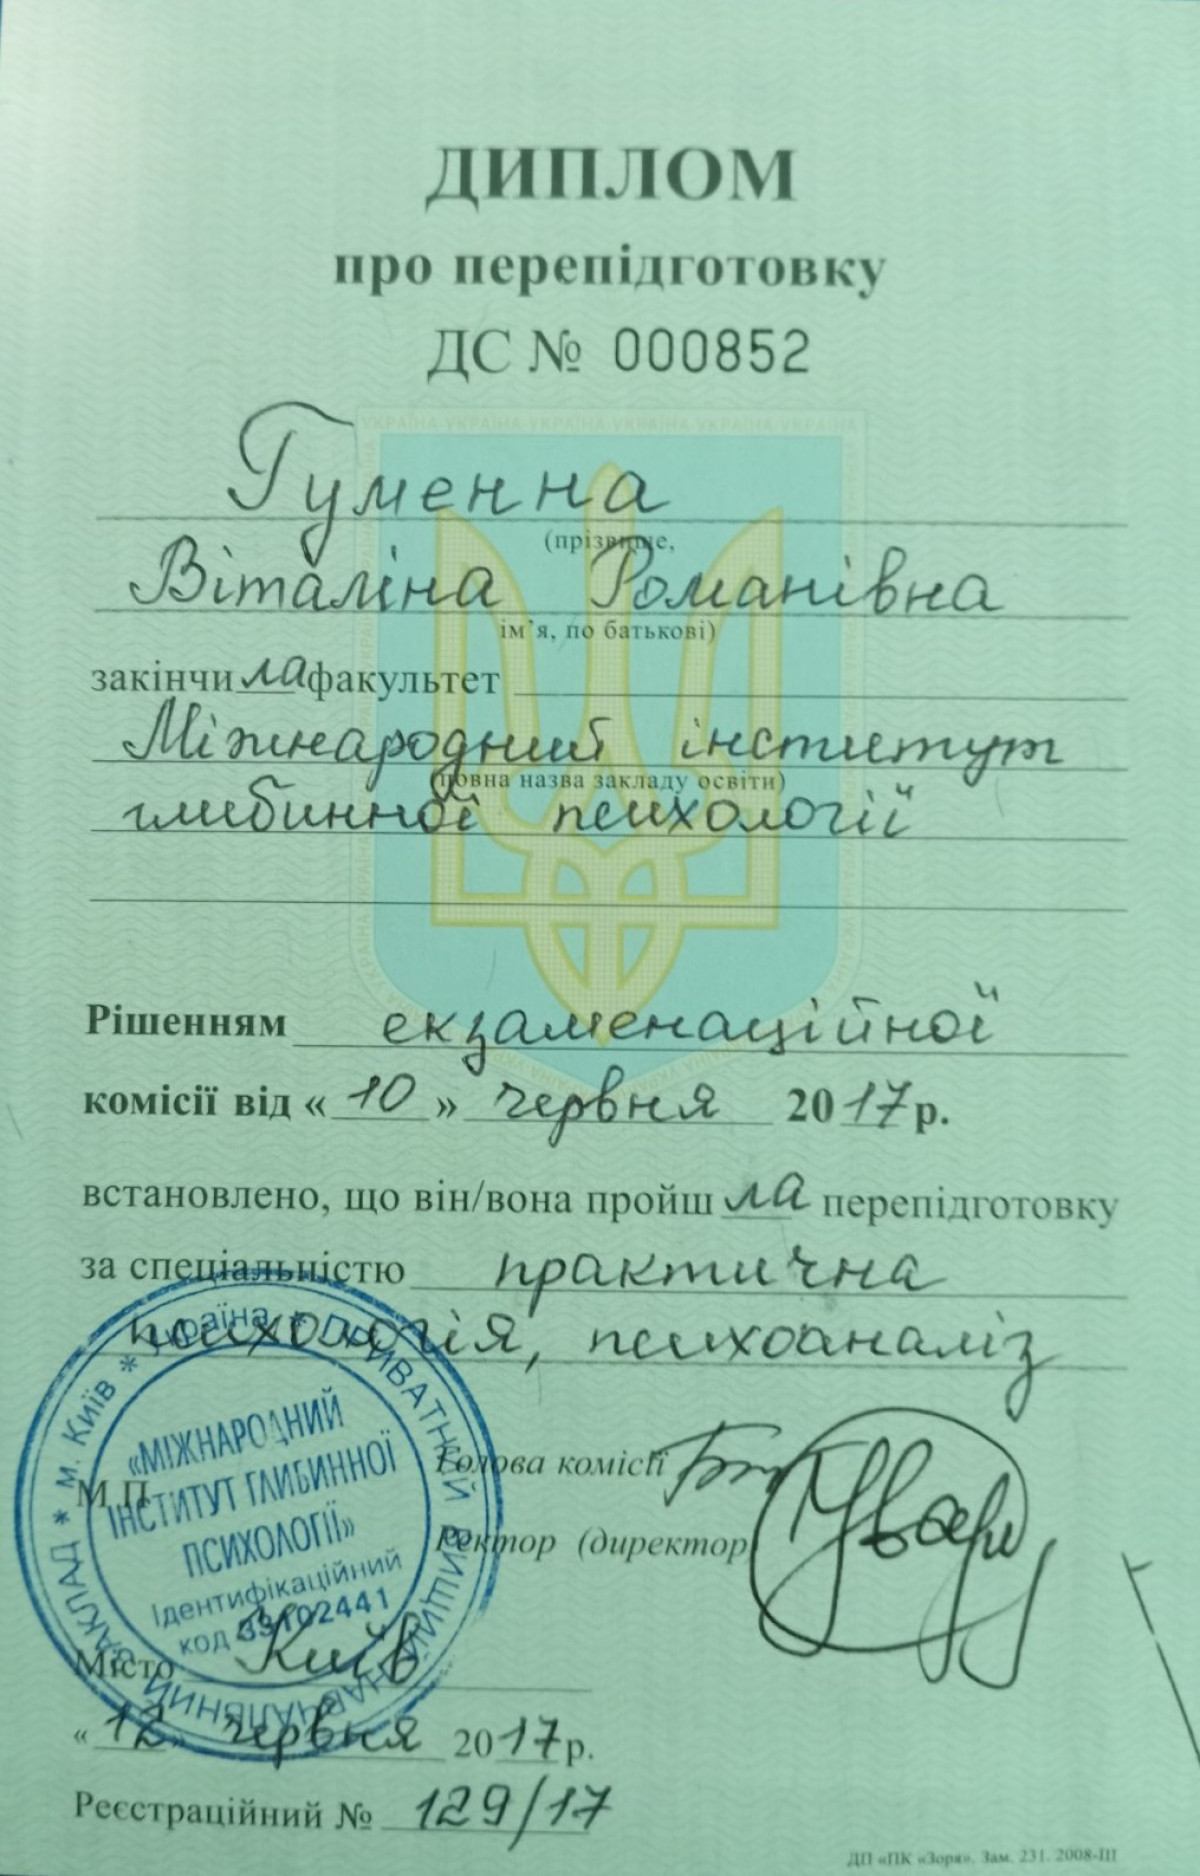 ДИПЛОМ
про перепідготовку
ДС № 000852
Гуменна
(прізвище,
Віталіна Романівна
ім'я, по батькові)
закінчила факультет
Міжнародний інститут
(повна назва закладу освіти)
глибинної психології
Рішенням екзаменаційної
комісії від «10» червня 2017 р.
встановлено, що він/вона пройшла перепідготовку
за спеціальністю практична
психологія, психоаналіз
Голова комісії
Ректор (директор
М.П.
* м. Київ * Україна * ПРИВАТНИЙ ВИЩИЙ НАВЧАЛЬНИЙ ЗАКЛАД
«МІЖНАРОДНИЙ
ІНСТИТУТ ГЛИБИННОЇ
ПСИХОЛОГІЇ»
Ідентифікаційний
код 33102441
Місто Київ
«12» червня 2017 р.
Реєстраційний № 129/17
ДП «ПК «Зоря». Зам. 231. 2008-III